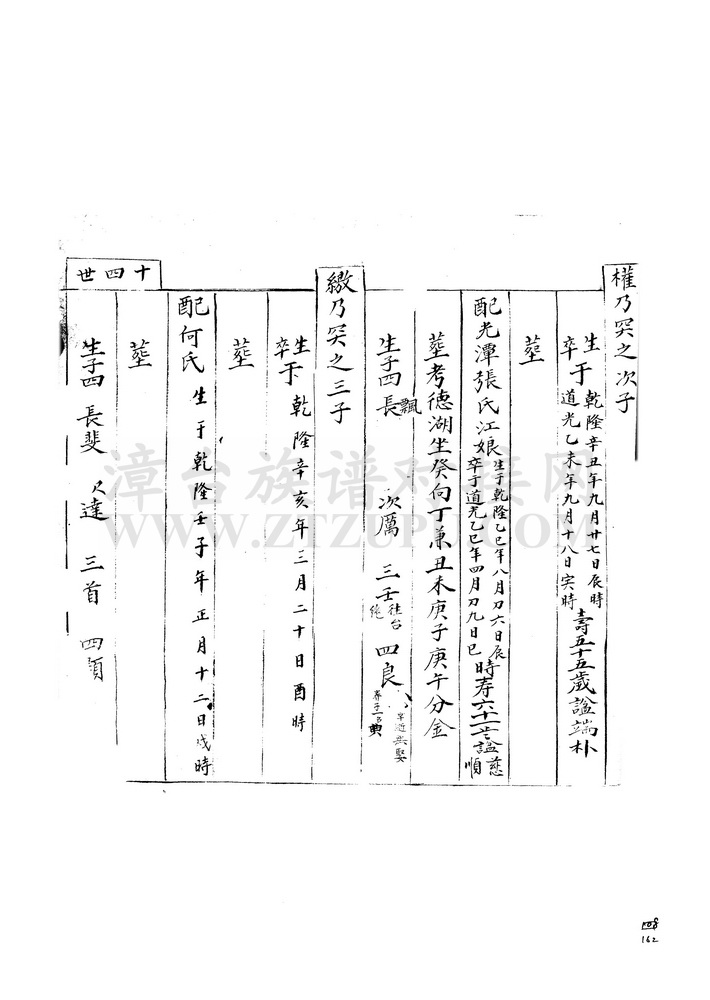 權乃哭之次子
生于 乾隆辛丑年九月廿七日辰時
卒于 道光乙未年九月十八日寅時
壽五十五歲諡端朴
塟
配光潭張氏江娘
生于乾隆乙巳年八月初六日辰
卒于道光乙巳年四月初九日巳
時寿六十一諡慈順
塟考德湖坐癸向丁兼丑未庚子庚午分金
生子四 長飄 次厲 三壬 四良
往台
繳乃哭之三子
生于 乾隆辛亥年三月二十日酉時
卒
塟
配何氏 生于乾隆壬子年正月十二日戌時
塟
生子四 長斐 次達 三首 四頭
十四世
漳台族谱对接网
WWW.ZTZUPU.COM
162